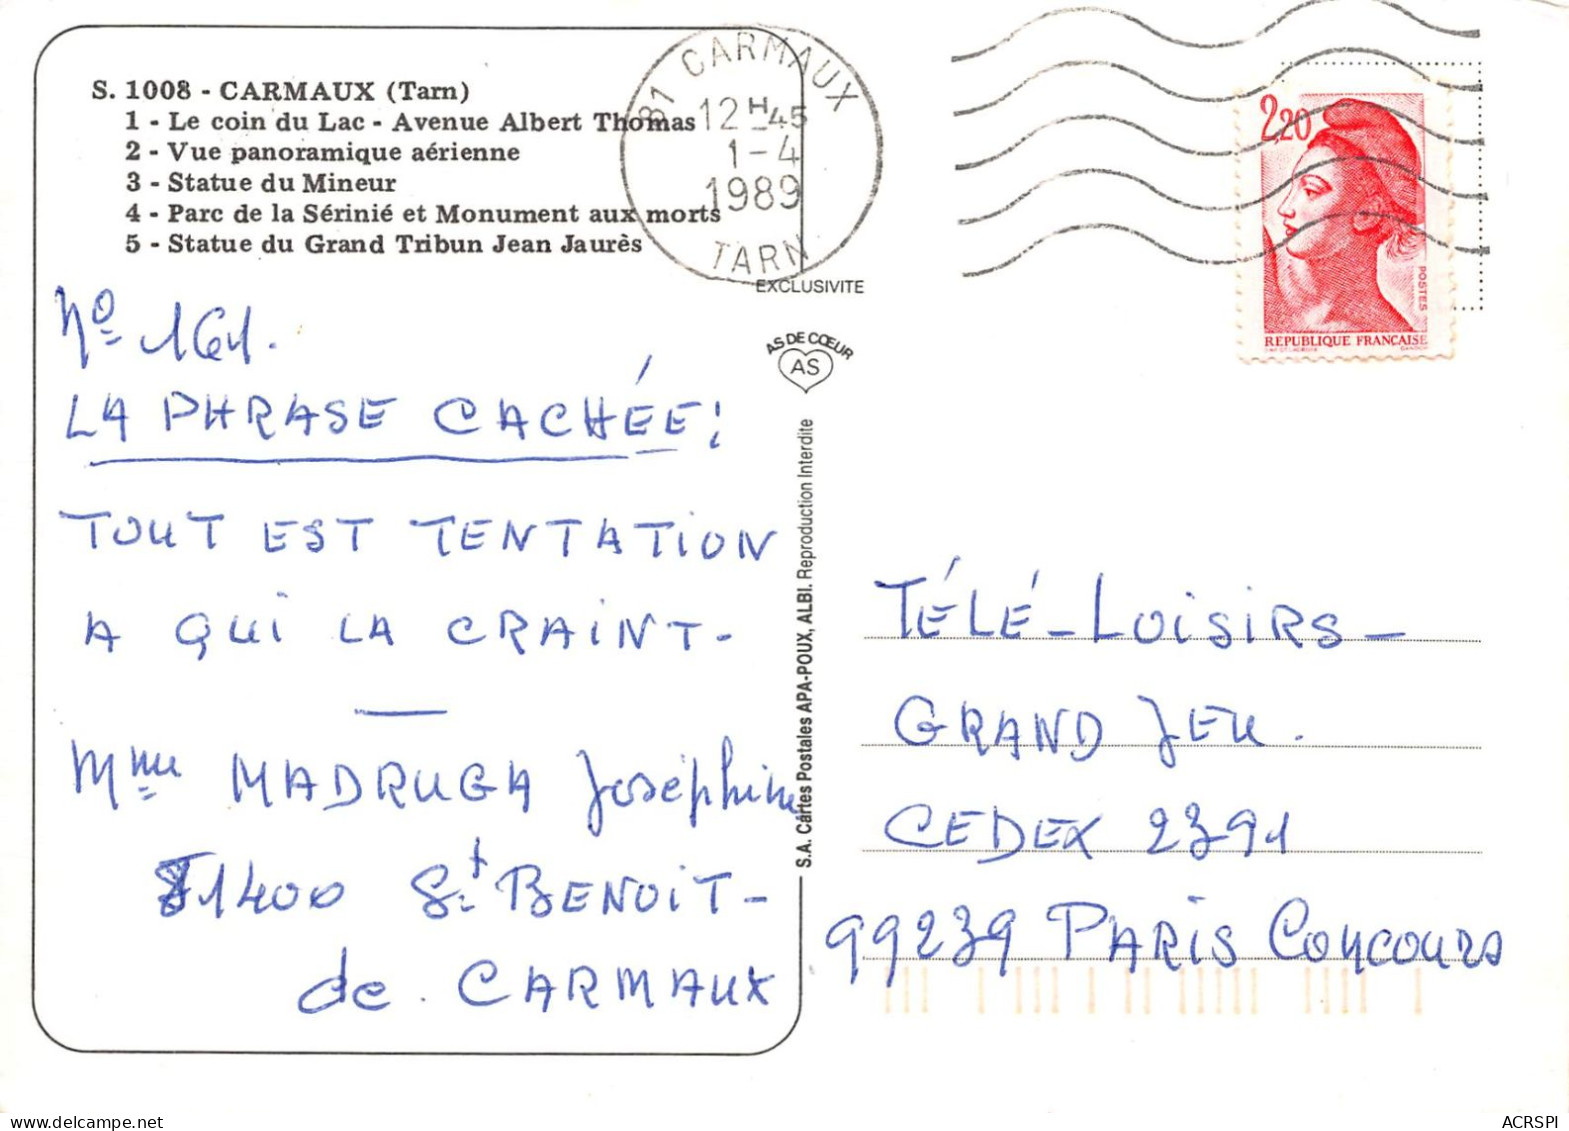 S. 1008 - CARMAUX (Tarn)
1 - Le coin du Lac - Avenue Albert Thomas
2 - Vue panoramique aérienne
3 - Statue du Mineur
4 - Parc de la Sérinié et Monument aux morts
5 - Statue du Grand Tribun Jean Jaurès
81 CARMAUX
12H45
1-4
1989
TARN
2,20
POSTES
REPUBLIQUE FRANÇAISE
EXCLUSIVITE
AS DE CŒUR
AS
S.A. Cartes Postales APA-POUX, ALBI. Reproduction Interdite
Nº 161.
LA PHRASE CACHÉE:
TOUT EST TENTATION
A QUI LA CRAINT-
Mme MADRUGA Joséphine
81400 St BENOIT-
de. CARMAUX
TÉLÉ-LOISIRS-
GRAND JEU.
CEDEX 2391
99239 PARIS CONCOURS
ACRSPI